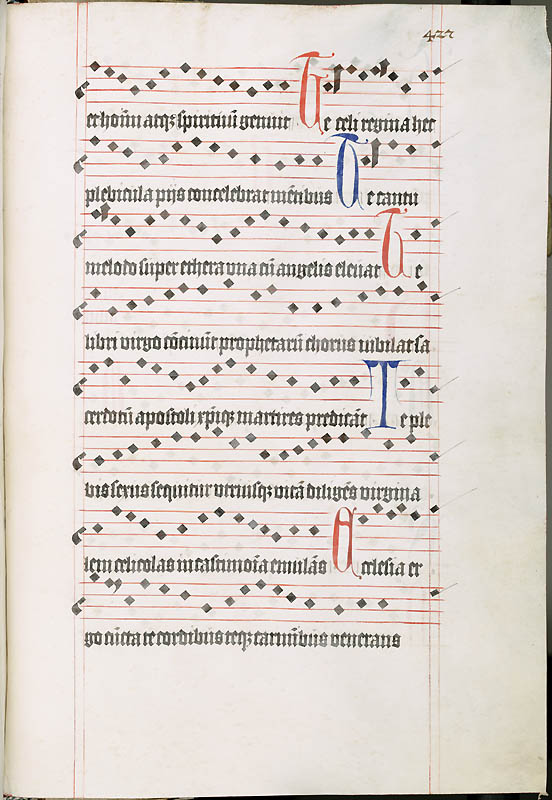 422
et hoīm atqꝫ spirituū genuit Te celi regina hec
plebicula pijs concelebrat mētibus Te cantu
melodo super ethera vna cū angelis eleuat Te
libri virgo cōcinūt prophetarū chorus iubilat sa
cerdotū apostoli xp̄iqꝫ martires predicāt Te ple
bis sexus sequitur vtriusqꝫ vitā diligēs virgina
lem celicolas in castimōia emulās Ecclesia er
go cūcta te cordibus teqꝫ carmībus venerans